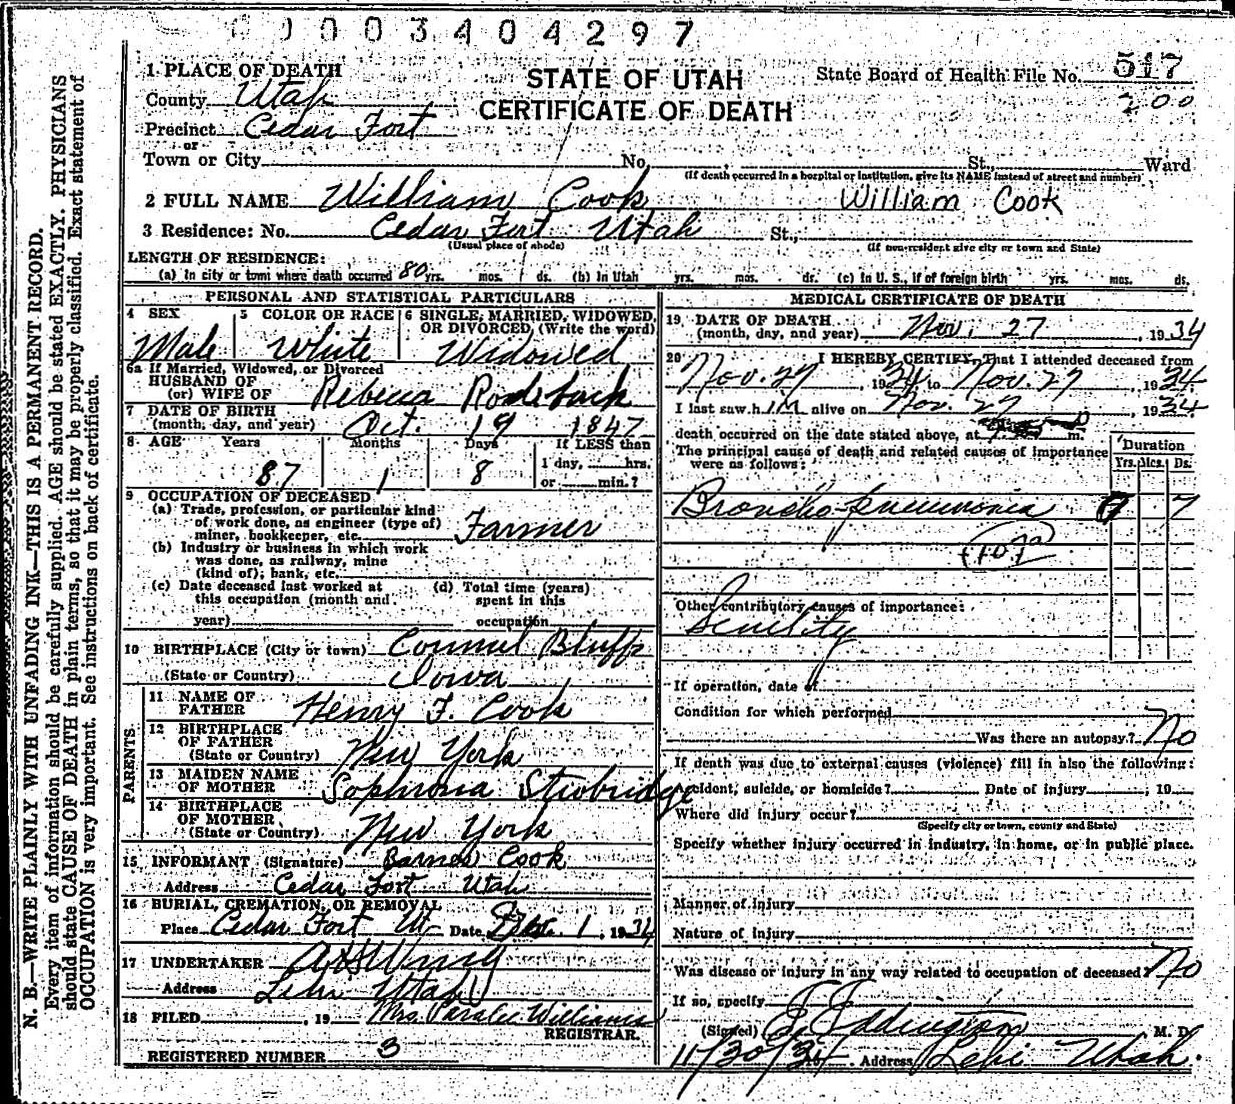 0003404297
STATE OF UTAH
CERTIFICATE OF DEATH
State Board of Health File No. 517
200
1 PLACE OF DEATH
County Utah
Precinct Cedar Fort
or
Town or City No. , St., Ward
(If death occurred in a hospital or institution, give its NAME instead of street and number)
2 FULL NAME William Cook William Cook
3 Residence: No. Cedar Fort Utah St.,
(Usual place of abode) (If nonresident give city or town and State)
LENGTH OF RESIDENCE:
(a) In city or town where death occurred 80 yrs. mos. ds. (b) In Utah yrs. mos. ds. (c) In U. S., if of foreign birth yrs. mos. ds.
PERSONAL AND STATISTICAL PARTICULARS
4 SEX 5 COLOR OR RACE 6 SINGLE, MARRIED, WIDOWED, OR DIVORCED, (Write the word)
Male White Widowed
6a If Married, Widowed, or Divorced
HUSBAND OF
(or) WIFE OF Rebecca Rodeback
7 DATE OF BIRTH
(month, day, and year) Oct. 19 1847
8 AGE Years Months Days If LESS than
87 1 8 1 day, hrs.
or min.?
9 OCCUPATION OF DECEASED
(a) Trade, profession, or particular kind
of work done, as engineer (type of)
miner, bookkeeper, etc. Farmer
(b) Industry or business in which work
was done, as railway, mine
(kind of); bank, etc.
(c) Date deceased last worked at (d) Total time (years)
this occupation (month and spent in this
year) occupation
10 BIRTHPLACE (City or town) Counnul Bluffs
(State or Country) Iowa
PARENTS
11 NAME OF
FATHER Henry F. Cook
12 BIRTHPLACE
OF FATHER
(State or Country) New York
13 MAIDEN NAME
OF MOTHER Sophrona Strobridge
14 BIRTHPLACE
OF MOTHER
(State or Country) New York
15 INFORMANT (Signature) Barnes Cook
Address Cedar Fort Utah
16 BURIAL, CREMATION, OR REMOVAL
Place Cedar Fort Ut. Date Dec. 1, 1934
17 UNDERTAKER A H Wing
Address Lehi Utah
18 FILED , 19 Mrs. Paralee Williams
REGISTRAR.
REGISTERED NUMBER 3
MEDICAL CERTIFICATE OF DEATH
19 DATE OF DEATH
(month, day, and year) Nov. 27, 1934
20 I HEREBY CERTIFY, That I attended deceased from
Nov. 27, 1934 to Nov. 27, 1934
I last saw him alive on Nov. 27, 1934
death occurred on the date stated above, at m.
The principal cause of death and related causes of importance
were as follows:
Duration
Yrs. Mos. Ds.
Broncho-pneumonia 7
(107a)
Other contributory causes of importance:
Senility
If operation, date of
Condition for which performed
Was there an autopsy? No
If death was due to external causes (violence) fill in also the following:
Accident, suicide, or homicide? Date of injury , 19
Where did injury occur?
(Specify city or town, county and State)
Specify whether injury occurred in industry, in home, or in public place.
Manner of injury
Nature of injury
Was disease or injury in any way related to occupation of deceased? No
If so, specify
(Signed) Eddington M. D.
11/30/34 Address Lehi Utah.
N. B.—WRITE PLAINLY WITH UNFADING INK—THIS IS A PERMANENT RECORD.
Every item of information should be carefully supplied. AGE should be stated EXACTLY. PHYSICIANS
should state CAUSE OF DEATH in plain terms, so that it may be properly classified. Exact statement of
OCCUPATION is very important. See instructions on back of certificate.